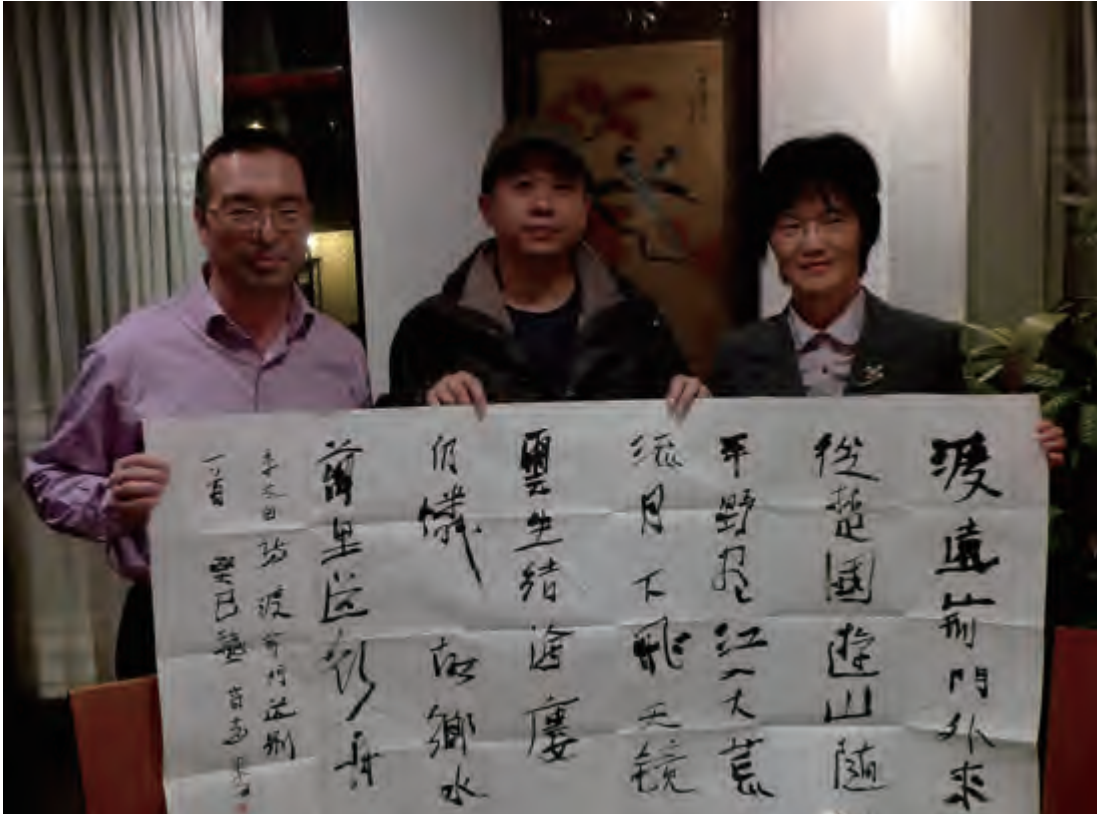 渡遠荆門外來
從楚國遊山隨
平野尽江入大荒
流月下飛天镜
雲生结海樓
仍憐故鄉水
萬里送行舟
李太白诗渡荆门送别
一首 癸巳